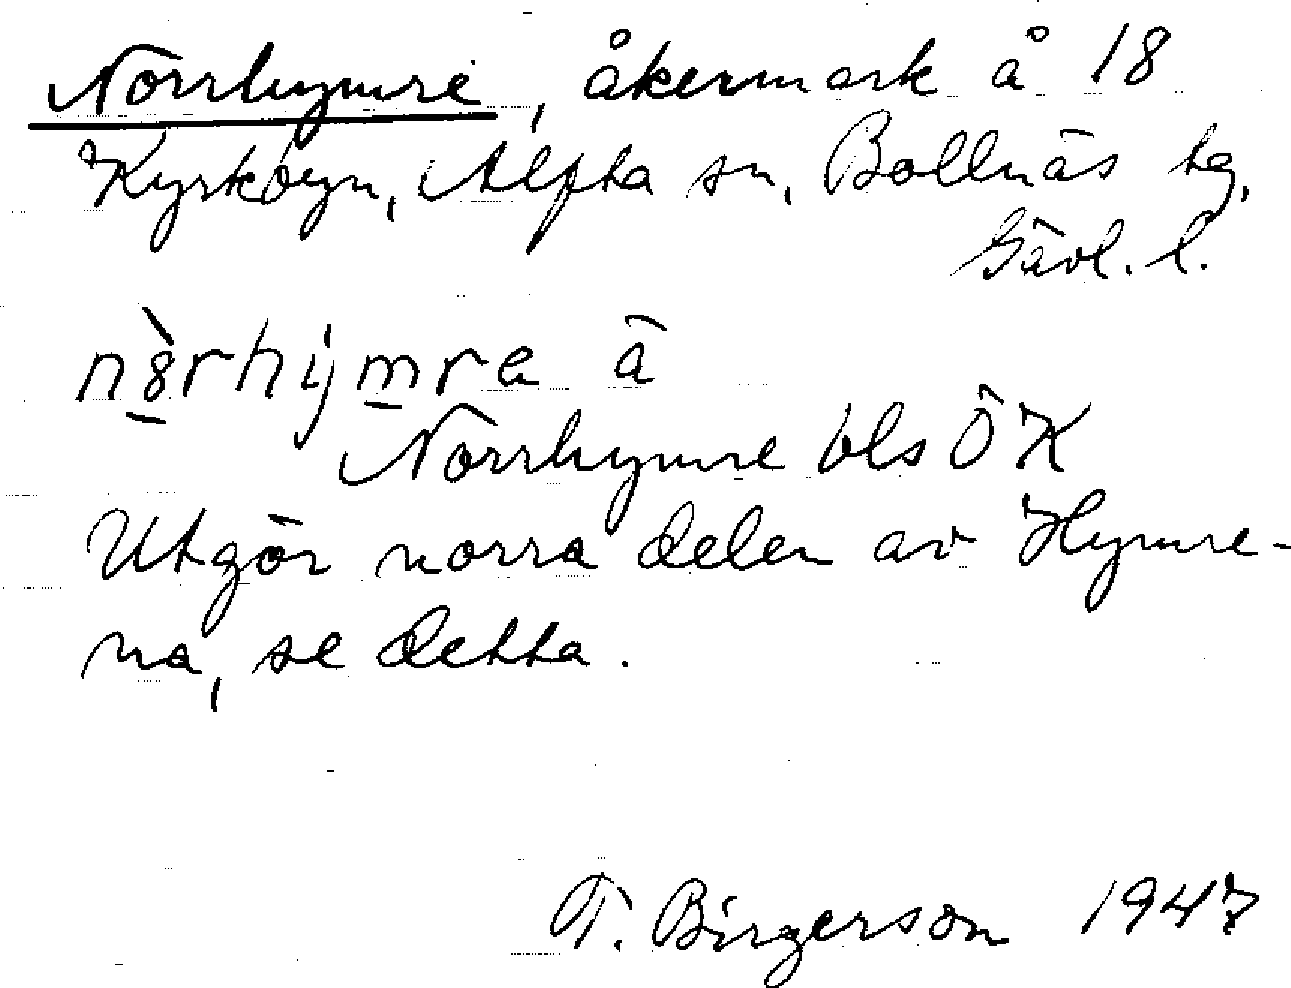 Norrhymre, åkermark å 18
Kyrkbyn, Alfta sn, Bollnäs tg,
Gävl. l.
nòrhymra ā
Norrhymre bls ÖK
Utgör norra delen av Hymre-
na, se detta.
T. Birgerson 1947